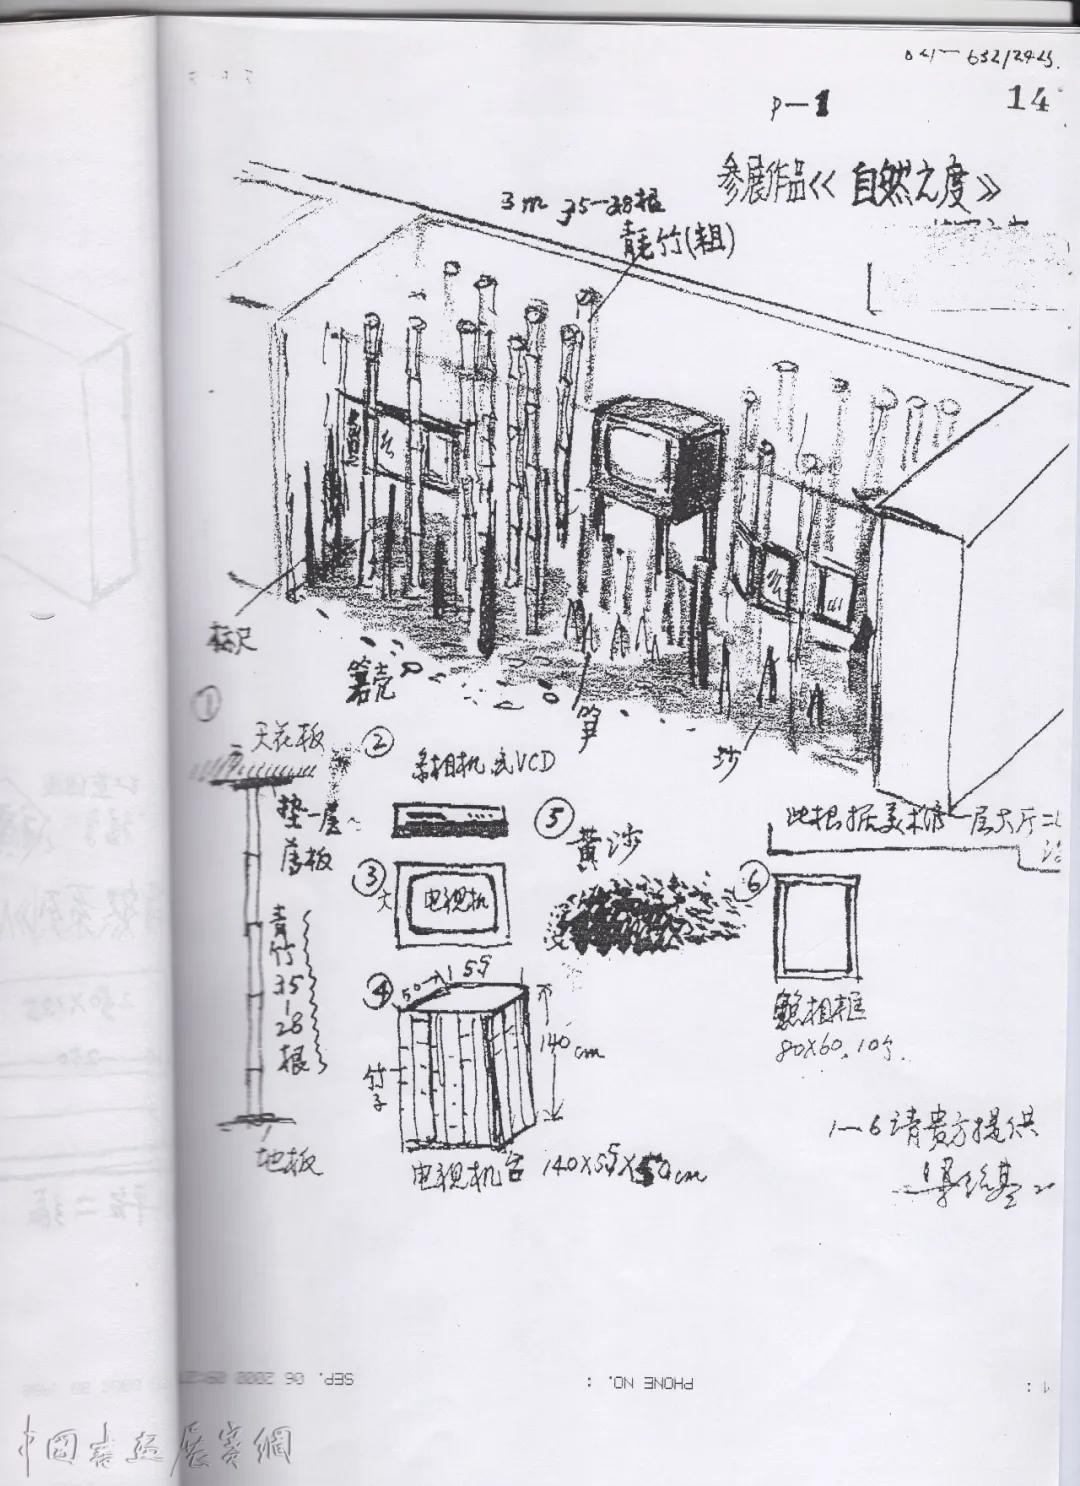 P—1
14
参展作品《自然之度》
3m 35—28根
青毛竹(粗)
标尺
箬壳
笋
沙
①
天花板
垫一层
薄板
青竹35-28根
地板
②
录相机或VCD
③
电视机
④
50
55
140cm
竹子
电视机台 140X55X50cm
⑤
黄沙
⑥
镜相框
80X60.10个.
此根据美术馆一层大厅
1—6请贵方提供
SEP. 06 2000
PHONE NO. :
中國書画展賽網